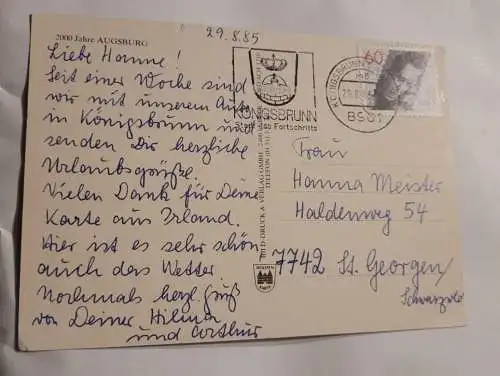 2000 Jahre AUGSBURG
29.8.85
Liebe Hanne!
Seit einer Woche sind
wir mit unserem Auto
in Königsbrunn und
senden Dir herzliche
Urlaubsgrüße.
Vielen Dank für Deine
Karte aus Irland.
Hier ist es sehr schön
auch das Wetter.
Nochmals herzl. Gruß
von Deiner Hilma
und Arthur
KÖNIGSBRUNN
Stadt des Fortschritts
KÖNIGSBRUNN
8901
60
Frau
Hanna Meister
Haldenweg 54
7742 St. Georgen/
Schwarzw.